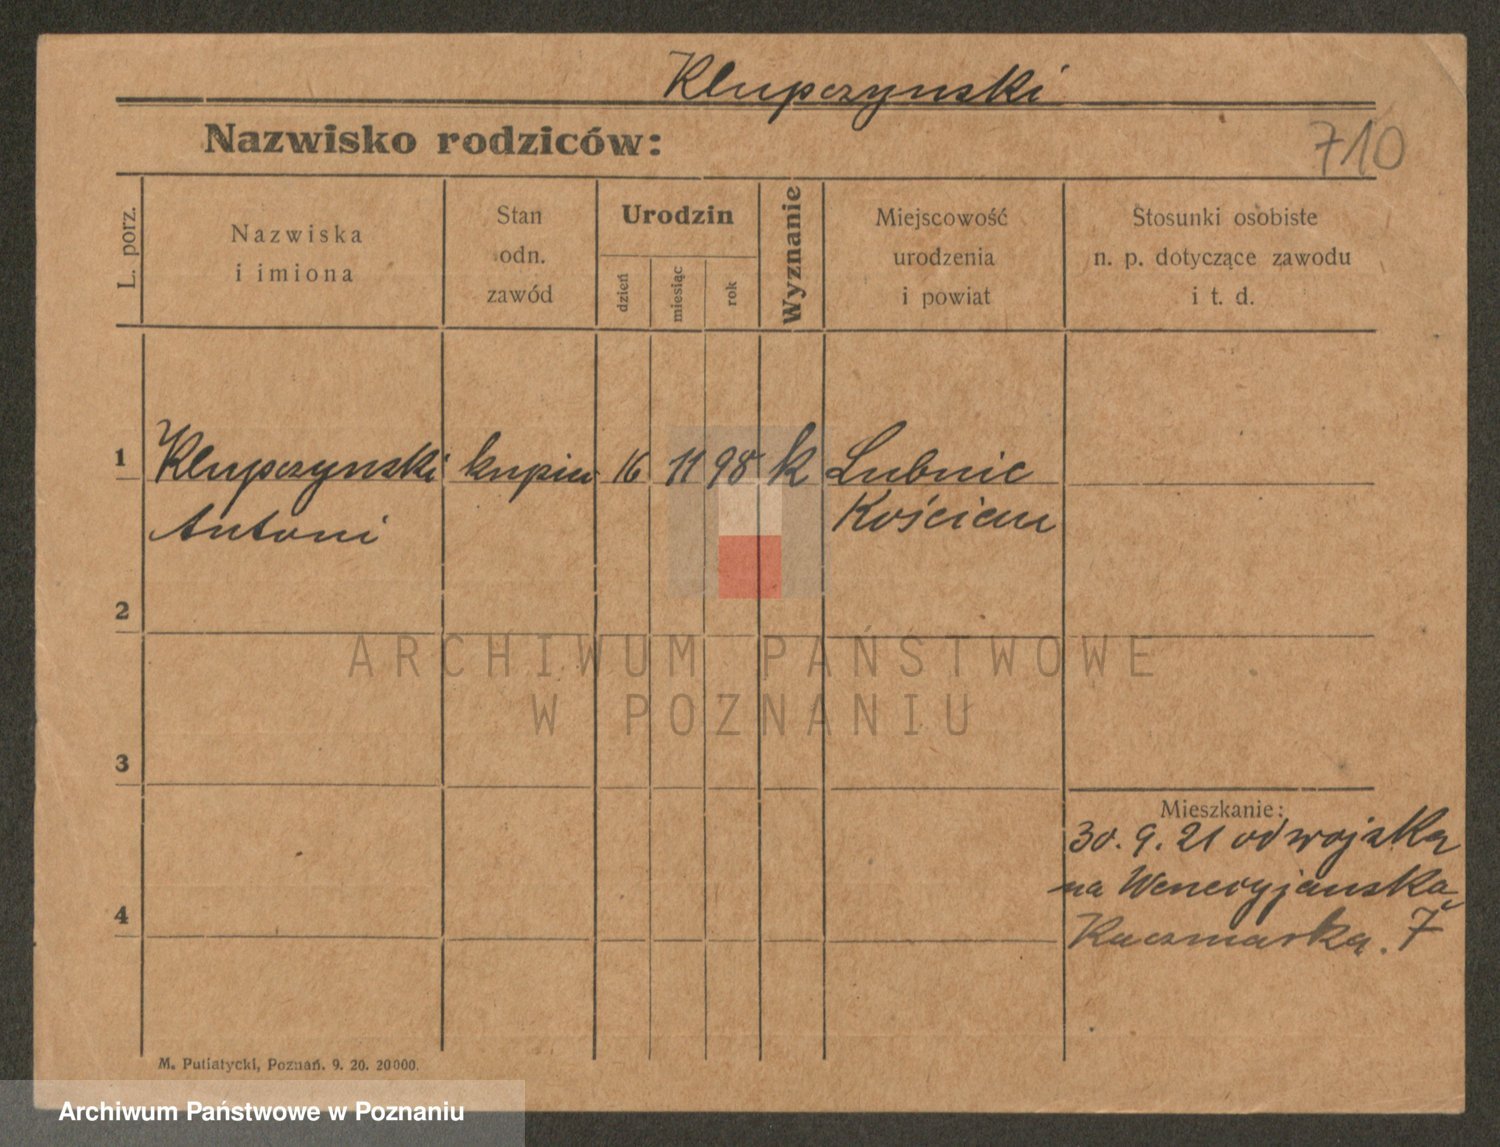 Klupczynski
Nazwisko rodziców:
710
L. porz.
Nazwiska
i imiona
Stan
odn.
zawód
Urodzin
dzień
miesiąc
rok
Wyznanie
Miejscowość
urodzenia
i powiat
Stosunki osobiste
n. p. dotyczące zawodu
i t. d.
1 Klupczynski kupiec 16 11 98 k Lubnic
Antoni Kościan
2
ARCHIWUM PAŃSTWOWE
W POZNANIU
3
Mieszkanie:
30. 9. 21 od wojska
na Wenecyjanska
4
Kaczmarka. 7
M. Putiatycki, Poznań. 9. 20. 20000.
Archiwum Państwowe w Poznaniu